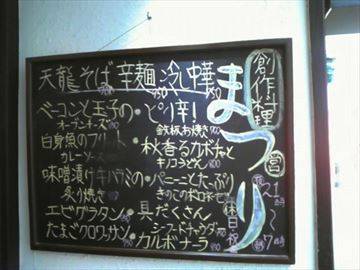 創作料理
まつり
営 夜 21時〜7時
休 日・祝
天龍そば 辛麺 冷し中華
ベーコンと玉子の
オーブンチーズ
・ピリ辛!
鉄板お焼き
白身魚のフリット
カレーソース
・秋香るカボチャと
キノコうどん
味噌漬けキハラミの
炙り焼き
・パニーニとたっぷり
きのこのボロネーゼ
エビグラタン
・具だくさん
シーフードチャウダー
たまごクロワッサン
カルボナーラ